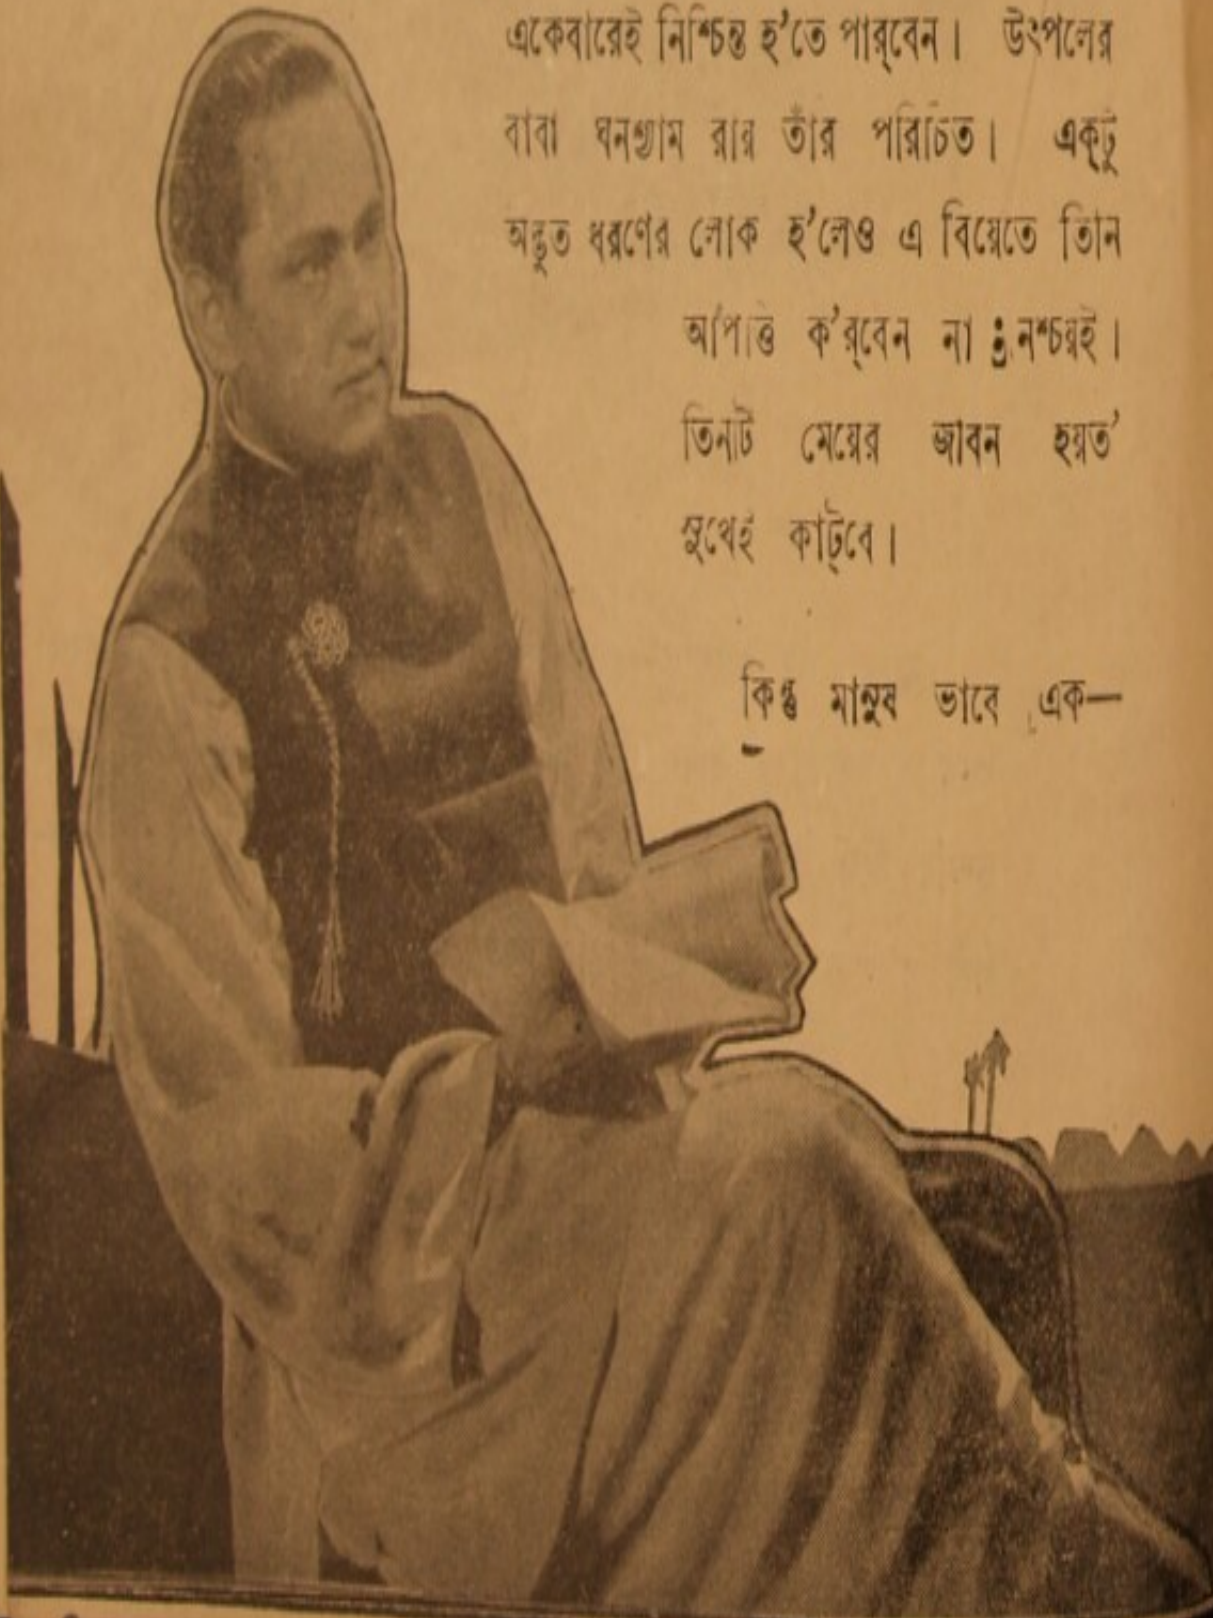 একেবারেই নিশ্চিন্ত হ'তে পার্‌বেন। উৎপলের
বাবা ঘনশ্যাম রায় তাঁর পরিচিত। একটু
অদ্ভুত ধরণের লোক হ'লেও এ বিয়েতে তিনি
আপত্তি ক'র্‌বেন না নিশ্চয়ই।
তিনটি মেয়ের জীবন হয়ত'
সুখেই কাট্‌বে।
কিন্তু মানুষ ভাবে এক—